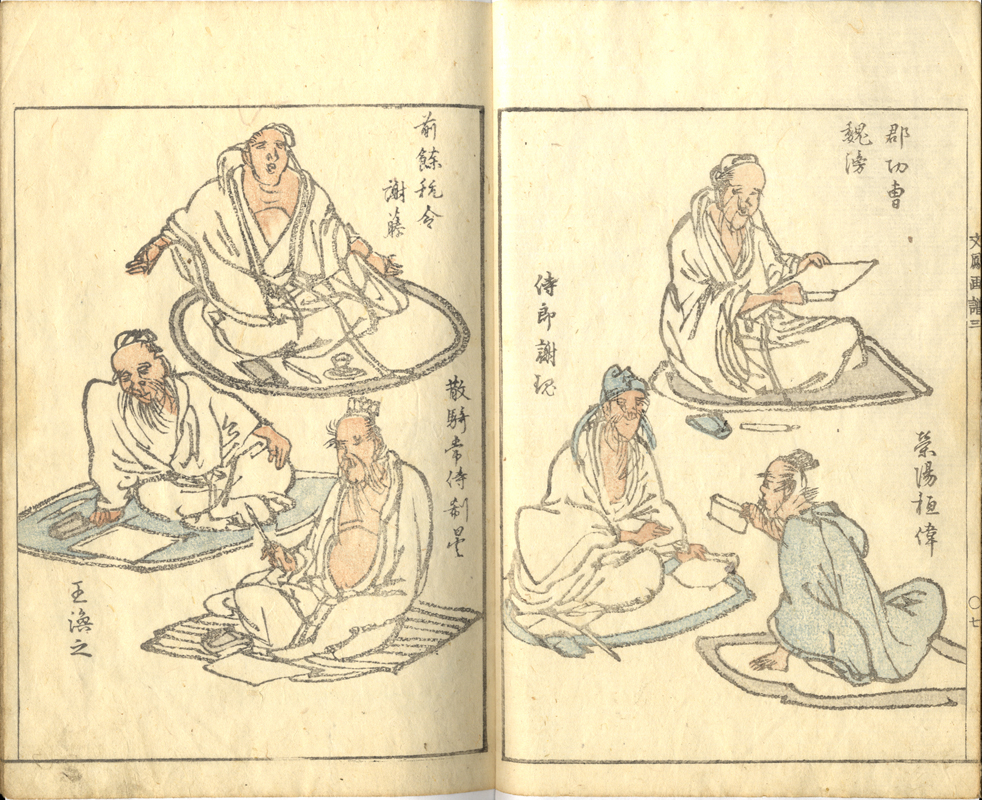 郡功曹
魏滂
侍郎謝瑰
滎陽桓偉
文鳳画譜三
〇七
前餘杭令
謝藤
散騎常侍郗曇
王渙之